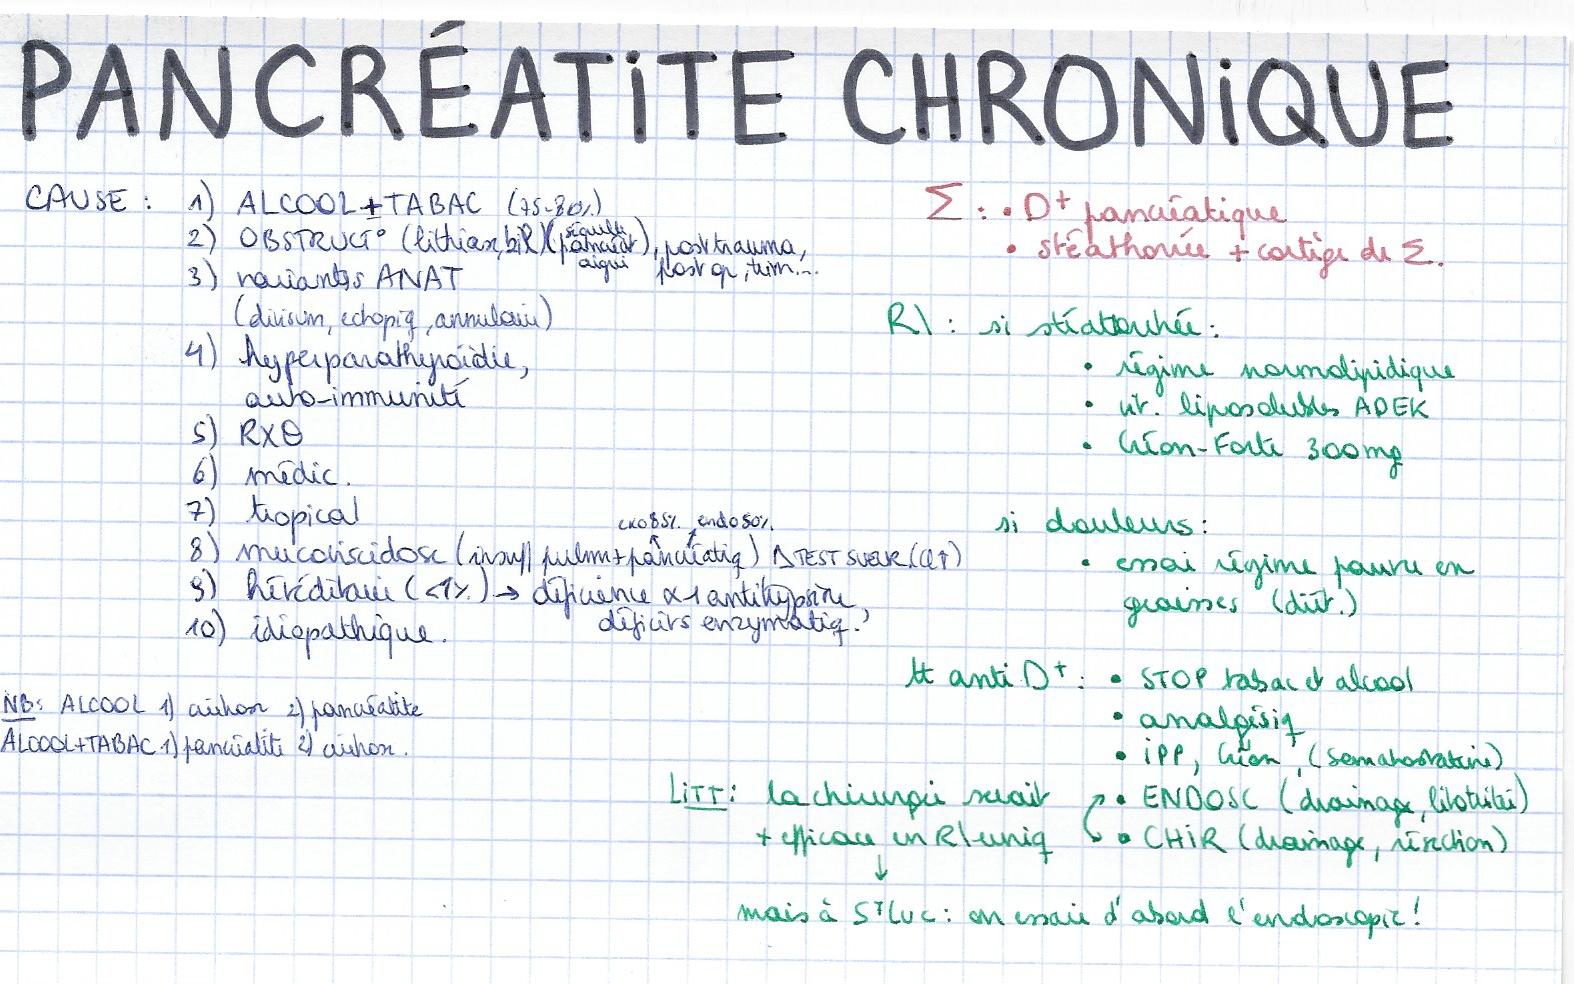 PANCRÉATITE CHRONIQUE
CAUSE :
1) ALCOOL ± TABAC (75-80%)
2) OBSTRUCT° (lithiase, bil) (séquelle pancréat aiguë), post trauma, post op, tum...
3) variantes ANAT
(divisum, ectopiq, annulaire)
4) hyperparathyroïdie,
auto-immunité
5) RXθ
6) médic.
7) tropical
exo 85% endo 50%
8) mucoviscidose (insuff pulm + pancréatiq) Δ TEST SUEUR (Cl↑)
9) héréditaire (<1%) → déficience α-1 antitrypsine,
déficits enzymatiq.
10) idiopathique.
NB: ALCOOL 1) cirrhose 2) pancréatite
ALCOOL+TABAC 1) pancréatite 2) cirrhose.
Σ : • D+ pancréatique
• stéathorrée + cortège de Σ.
R\ : si stéatorrhée :
• régime normolipidique
• vit. liposolubles ADEK
• Créon-Forte 300mg
si douleurs :
• essai régime pauvre en
graisses (diét.)
tt anti D+ : • STOP tabac et alcool
• analgésiq
• IPP, Créon, (somatostatine)
LITT : la chirurgie serait
+ efficace en R\ uniq
• ENDOSC (drainage, lithotritie)
• CHIR (drainage, résection)
↓
mais à St Luc : on essaie d'abord l'endoscopie !